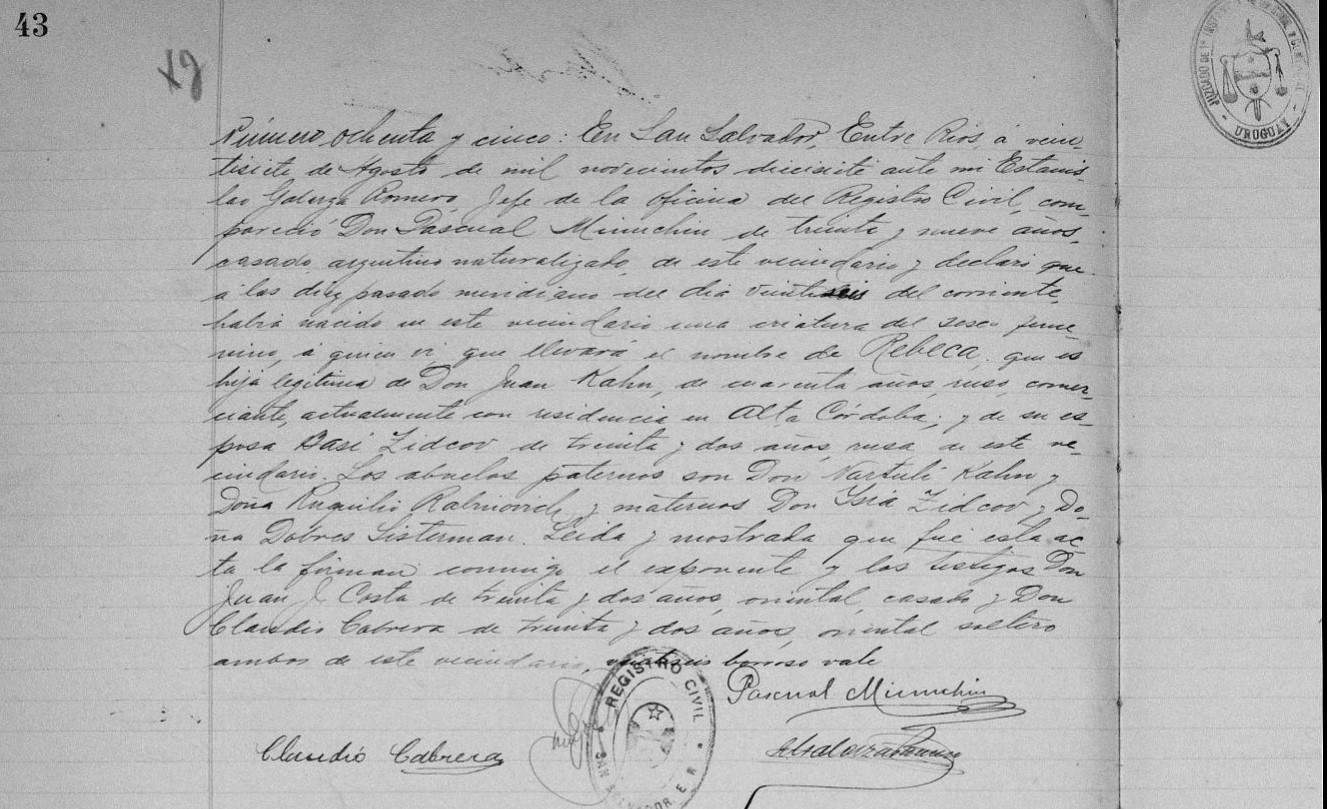 43
Número ochenta y cinco: En San Salvador, Entre Rios, á vein-
tisiete de Agosto de mil novecientos diecisiete ante mi Estanis-
lao Galarza Romero, Jefe de la oficina del Registro Civil, com-
pareció Don Pascual Minuchin de treinta y nueve años,
casado, argentino naturalizado, de este vecindario y declaró que
á las diez pasado meridiano del dia veintiseis del corriente
habia nacido en este vecindario una criatura del sexo feme-
nino, á quien vi, que llevará el nombre de Rebeca, que es
hija legitima de Don Juan Kahn, de cuarenta años, ruso, comer-
ciante, actualmente con residencia en Alta Córdoba; y de su es-
posa Basi Zidcov de treinta y dos años, rusa, de este ve-
cindario. Los abuelos paternos son Don Nartuli Kahn y
Doña Rabinovich y maternos Don Zidcov y Do-
ña Dobres Sisterman. Leida y mostrada que fué esta ac-
ta la firman conmigo el exponente y los testigos Don
Juan J. Costa de treinta y dos años, oriental, casado y Don
Claudio Cabrera de treinta y dos años, oriental soltero
ambos de este vecindario, veintiseis borroso vale
Pascual Minuchin
Claudio Cabrera
REGISTRO CIVIL
SAN SALVADOR E. R.
JUZGADO DE 1ª
URUGUAY